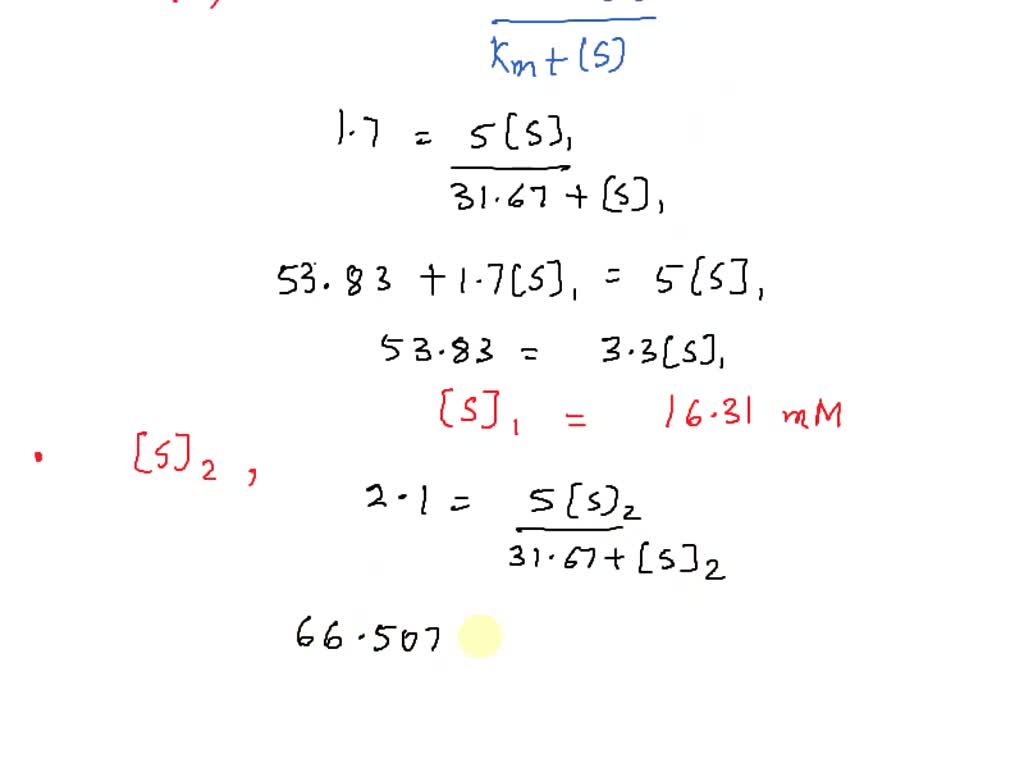 Km + [S]
1.7 = 5[S]₁
31.67 + [S]₁
53.83 + 1.7[S]₁ = 5[S]₁
53.83 = 3.3[S]₁
[S]₁ = 16.31 mM
• [S]₂ ,
2.1 = 5[S]₂
31.67 + [S]₂
66.507